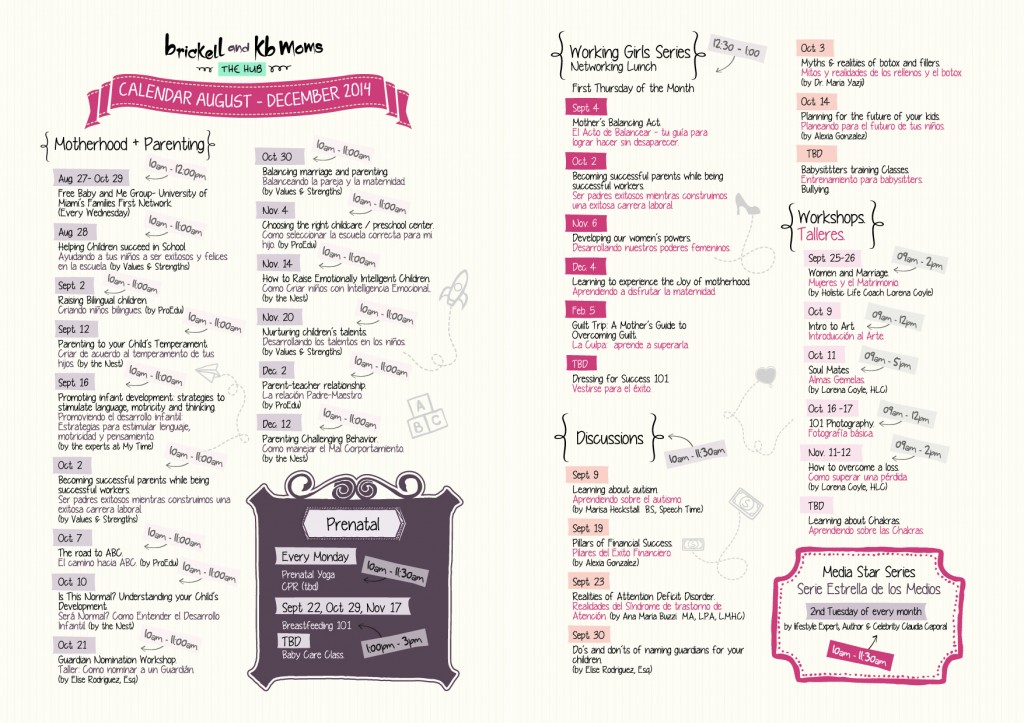 brickell and kb moms
THE HUB
CALENDAR AUGUST - DECEMBER 2014
Motherhood + Parenting
10am - 12:00pm
Aug. 27- Oct 29
Free Baby and Me Group- University of
Miami's Families First Network
(Every Wednesday)
10am - 11:00am
Aug. 28
Helping Children succeed in School
Ayudando a tus niños a ser exitosos y felices
en la escuela (by Values & Strengths)
Sept. 2
10am - 11:00am
Raising Bilingual children.
Criando niños bilingues. (by ProEdu)
Sept. 12
10am - 11:00am
Parenting to your Child's Temperament.
Criar de acuerdo al temperamento de tus
hijos. (by the Nest)
Sept. 16
10am - 11:00am
Promoting infant development: strategies to
stimulate language, motricity and thinking.
Promoviendo el desarrollo infantil:
Estrategias para estimular lenguaje,
motricidad y pensamiento.
(by the experts at My Time)
Oct. 2
10am - 11:00am
Becoming successful parents while being
successful workers.
Ser padres exitosos mientras construimos una
exitosa carrera laboral
(by Values & Strengths)
Oct. 7
10am - 11:00am
The road to ABC.
El camino hacia ABC. (by ProEdu)
Oct. 10
10am - 11:00am
Is This Normal? Understanding your Child's
Development
Será Normal? Como Entender el Desarrollo
Infantil (by the Nest)
Oct. 21
10am - 11:00am
Guardian Nomination Workshop.
Taller: Como nominar a un Guardián.
(by Elise Rodriguez, Esq)
Oct. 30
10am - 11:00am
Balancing marriage and parenting.
Balanceando la pareja y la maternidad.
(by Values & Strengths)
Nov. 4
10am - 11:00am
Choosing the right childcare / preschool center.
Como seleccionar la escuela correcta para mi
hijo. (by ProEdu)
Nov. 14
10am - 11:00am
How to Raise Emotionally Intelligent Children.
Como Criar niños con Inteligencia Emocional.
(by the Nest)
Nov. 20
10am - 11:00am
Nurturing children's talents.
Desarrollando los talentos en los niños.
(by Values & Strengths)
Dec. 2
10am - 11:00am
Parent-teacher relationship.
La relación Padre-Maestro.
(by ProEdu)
Dec. 12
10am - 11:00am
Parenting Challenging Behavior.
Como manejar el Mal Comportamiento.
(by the Nest)
A
B C
Prenatal
Every Monday
10am - 11:30am
Prenatal Yoga
CPR (tbd)
Sept 22, Oct 29, Nov 17
Breastfeeding 101
TBD
1:00pm - 3pm
Baby Care Class.
Working Girls Series
Networking Lunch
12:30 - 1:00
First Thursday of the Month
Sept. 4
Mother's Balancing Act.
El Acto de Balancear - tu guía para
lograr hacer sin desaparecer.
Oct. 2
Becoming successful parents while being
successful workers.
Ser padres exitosos mientras construimos
una exitosa carrera laboral
Nov. 6
Developing our women's powers.
Desarrollando nuestros poderes femeninos.
Dec. 4
Learning to experience the Joy of motherhood.
Aprendiendo a disfrutar la maternidad
Feb. 5
Guilt Trip: A Mother's Guide to
Overcoming Guilt.
La Culpa: aprende a superarla.
TBD
Dressing for Success. 101
Vestirse para el éxito
Discussions
10am - 11:30am
Sept. 9
Learning about autism.
Aprendiendo sobre el autismo.
(by Marisa Heckstall BS, Speech Time)
Sept. 19
Pillars of Financial Success.
Pilares del Exito Financiero.
(by Alexia Gonzalez)
Sept. 23
Realities of Attention Deficit Disorder.
Realdades del Síndrome de trastorno de
Atención (by Ana Maria Buzzi MA, LPA, LMHC)
Sept. 30
Do's and don'ts of naming guardians for your
children.
(by Elise Rodriguez, Esq)
Oct. 3
Myths & realities of botox and fillers.
Mitos y realidades de los rellenos y el botox
(by Dr. Maria Yazji)
Oct. 14
Planning for the future of your kids.
Planeando para el futuro de tus niños.
(by Alexia Gonzalez)
TBD
Babysittters training Classes.
Entrenamiento para babysitters.
Bullying.
Workshops.
Talleres.
Sept. 25-26
09am - 2pm
Women and Marriage.
Mujeres y el Matrimonio
(by Holistic Life Coach Lorena Coyle)
Oct. 9
09am - 12pm
Intro to Art.
Introducción al Arte.
Oct. 11
09am - 5pm
Soul Mates
Almas Gemelas.
(by Lorena Coyle, HLC)
Oct. 16 -17
09am - 12pm
101 Photography.
Fotografía básica.
Nov. 11-12
09am - 2pm
How to overcome a loss.
Como superar una pérdida
(by Lorena Coyle, HLC)
TBD
Learning about Chakras.
Aprendiendo sobre las Chakras.
Media Star Series
Serie Estrella de los Medios
2nd Tuesday of every month
by lifestyle Expert, Author & Celebrity Claudia Caporal
10am - 11:30am